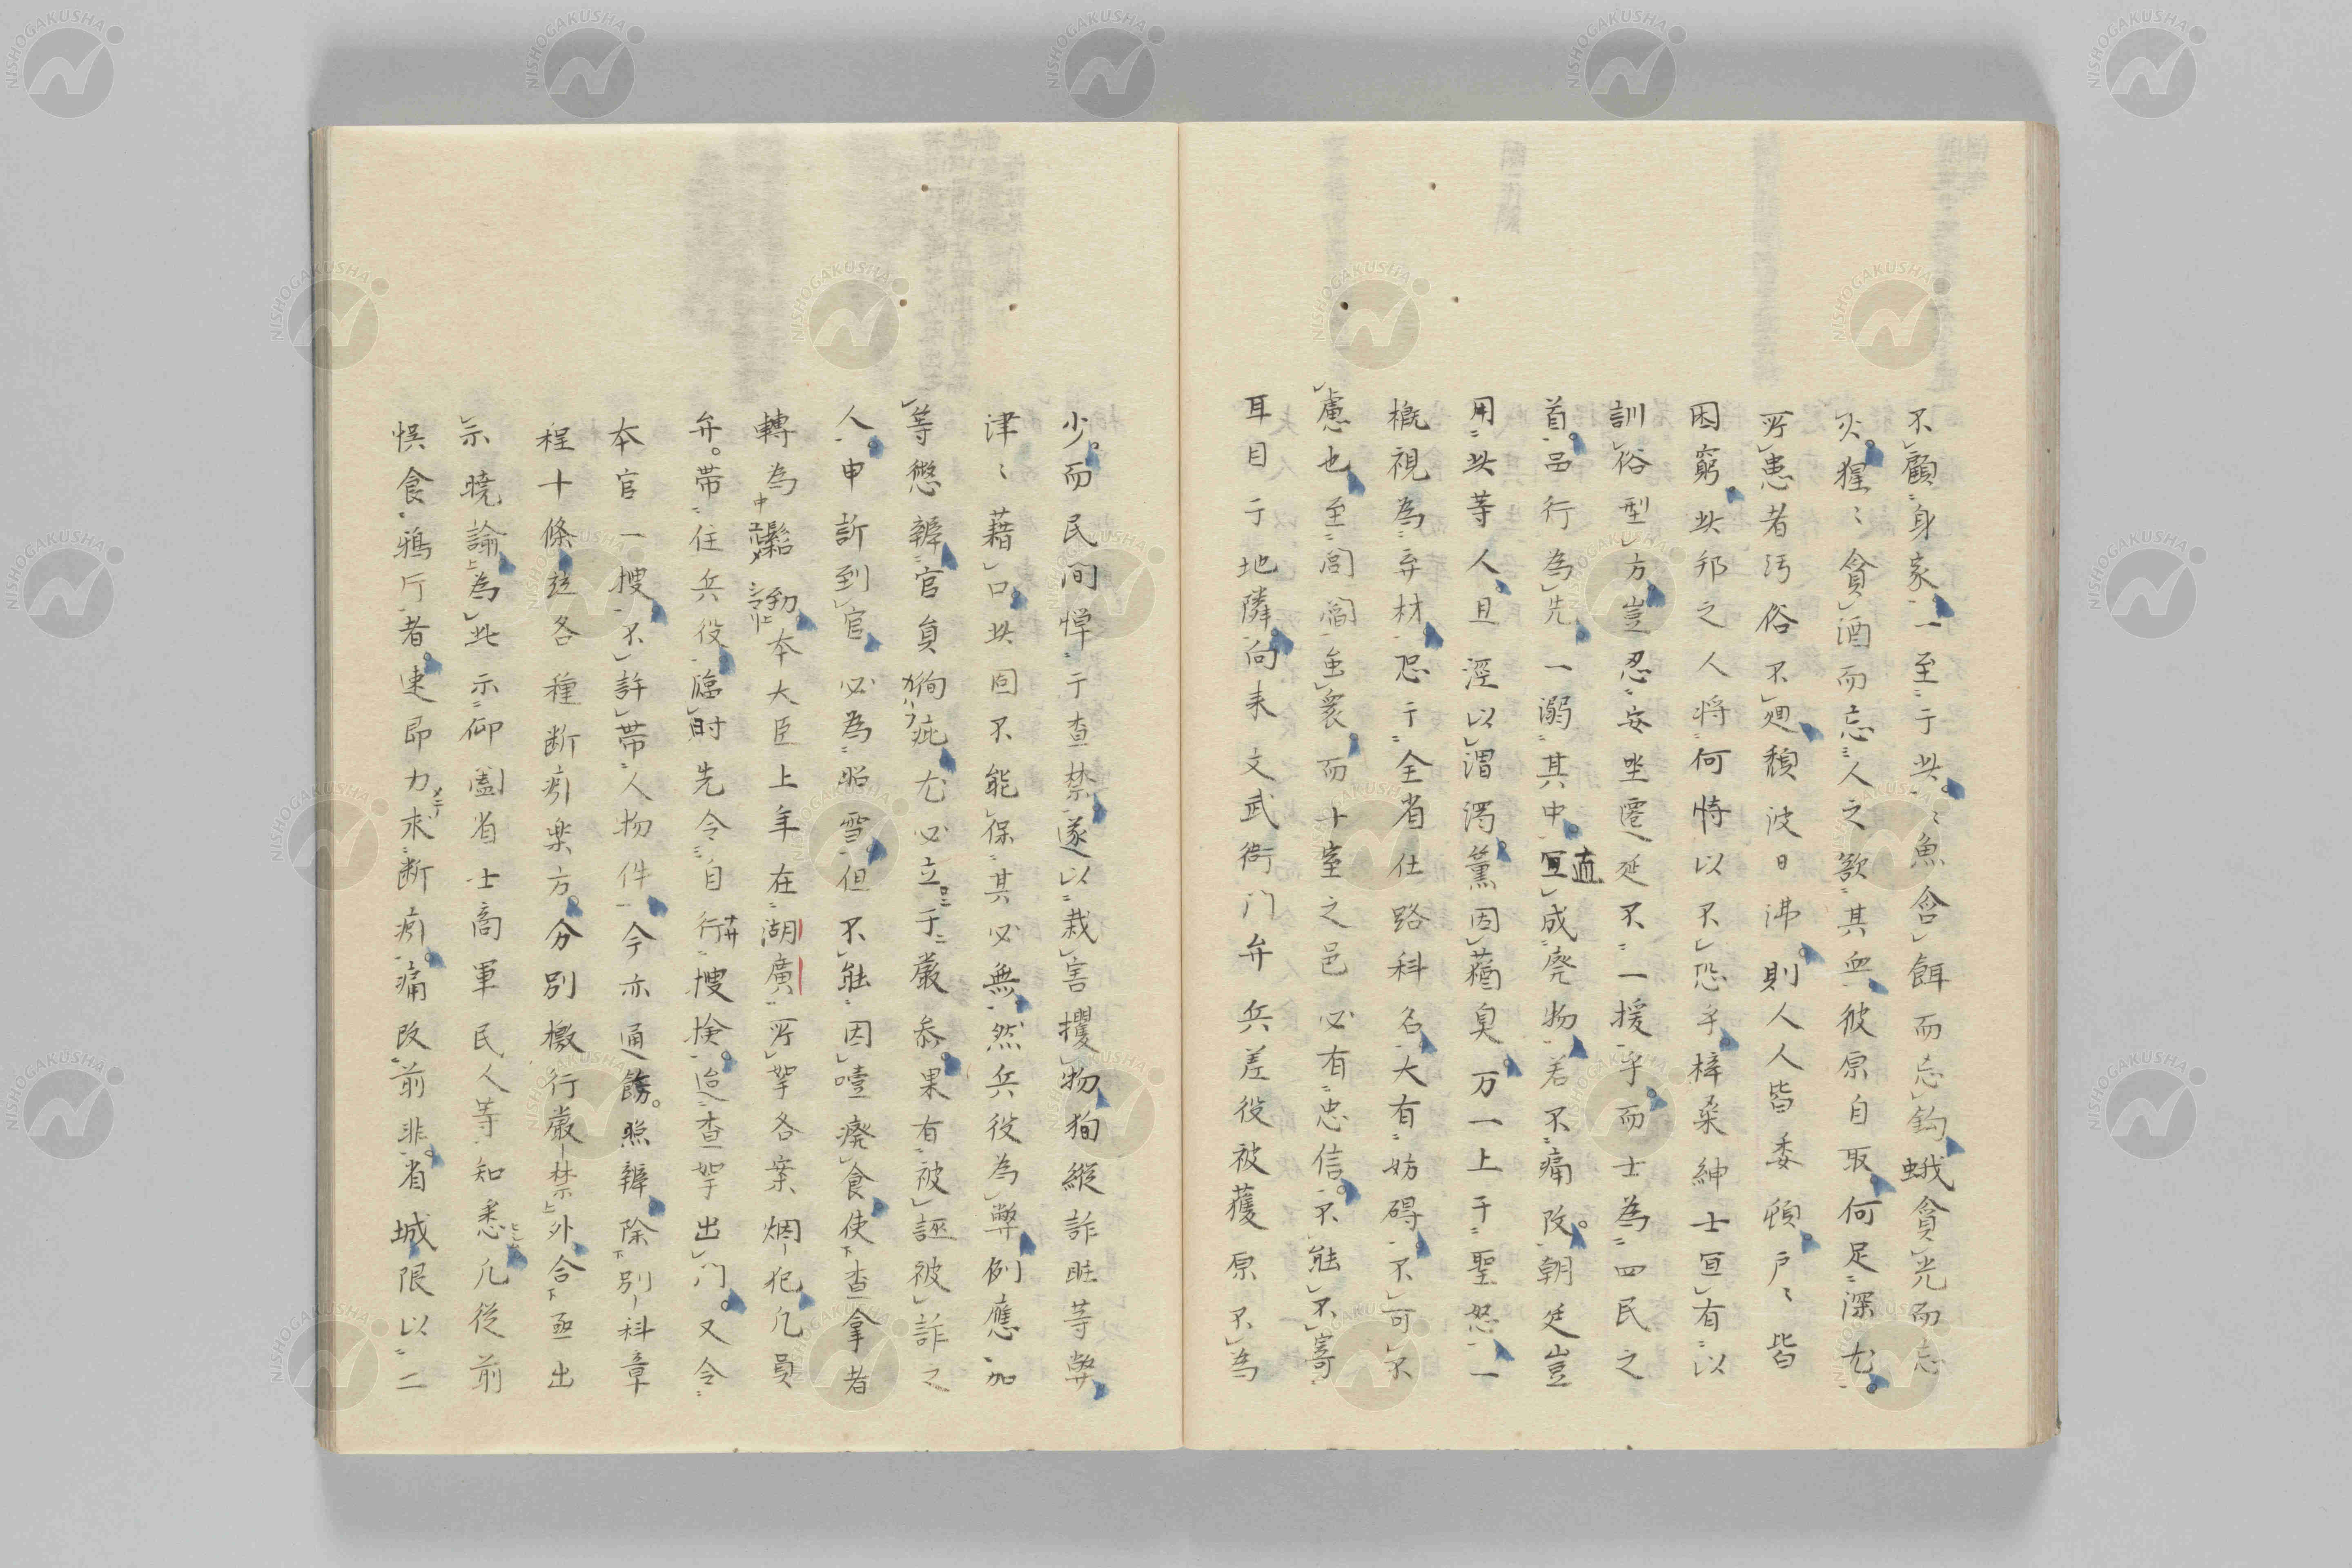 不顧身家一至于此〻魚含餌而忘鈎蛾貪光而忘
火猩〻貪酒而忘人之欲其血彼原自取何足深尤
所患者汚俗不廻頽波日沸則人人皆委頓戸〻皆
困窮此邦之人将何恃以不恐乎梓桒紳士宜有以
訓俗型方豈忍安坐遷延不一援乎而士為四民之
首品行為先一溺其中直成廃物若不痛改朝廷豈
用此等人且涇以渭濁薫因蕕臭万一上干聖怒一
概視為弃材恐于全省仕路科名大有妨碍不可不
慮也至閭閻虽衆而十室之邑必有忠信不能不寄
耳目于地隣向来文武衙门弁兵差役被獲原不為
少而民间憚于查禁遂以栽害攫物狥縦詐賍等弊
津〻藉口此固不能保其必無然兵役為弊例應加
等懲辦官員狥庇尤必立于厳参果有被誣被詐之
人申訴到官必為昭雪但不能因噎癈食使査拿者
轉為鬆勁本大臣上年在湖廣所拏各案烟犯凢員
弁帯住兵役臨时先令自行搜検迨查拏出门又令
本官一搜不許帯人物件今亦通餝照辦除別科章
程十條竝各種断痢薬方分別檄行厳禁外合亟出
示暁諭為此示仰闔省士商軍民人等知悉凢従前
悞食鴉片者速即力求断痢痛改前非省城限以二